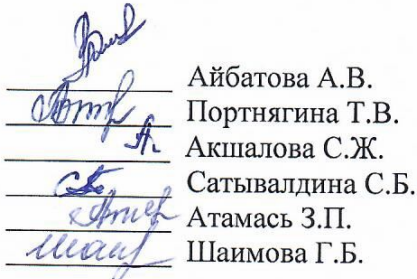 Айбатова А.В.
Портнягина Т.В.
Акшалова С.Ж.
Сатывалдина С.Б.
Атамась З.П.
Шаимова Г.Б.